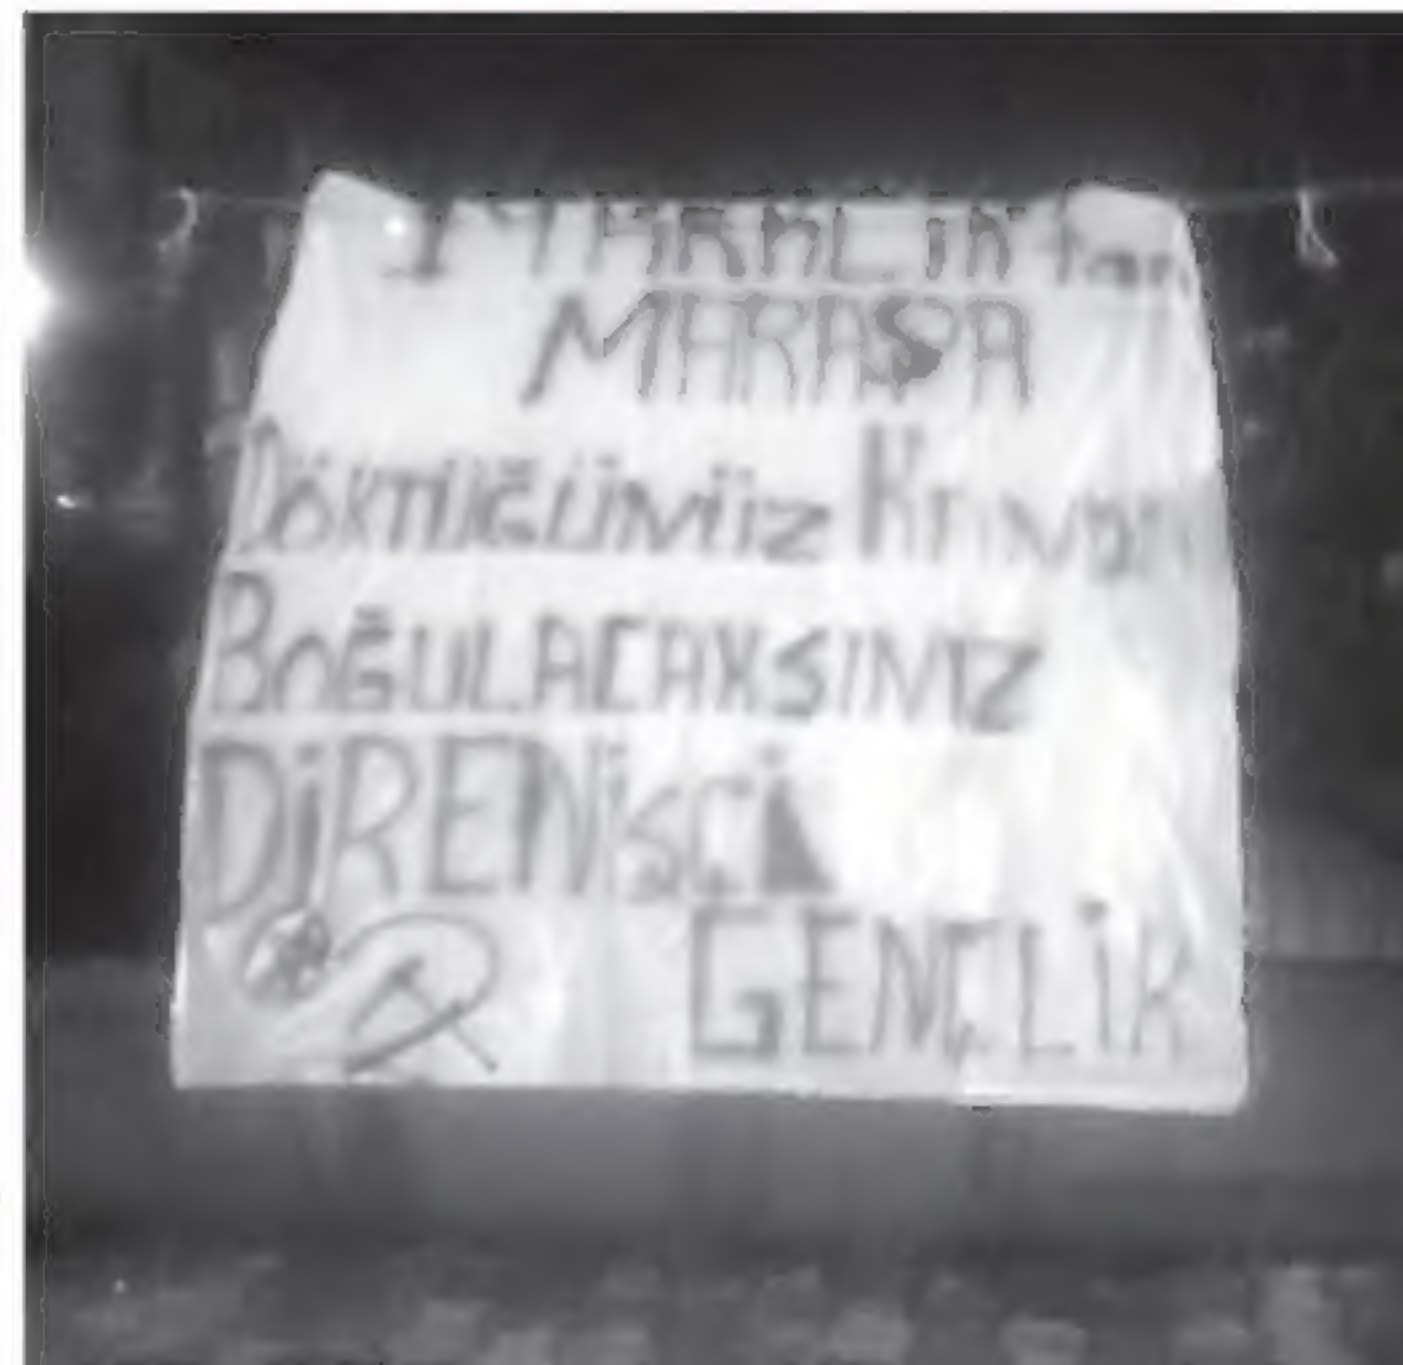 MARAŞA
DÖKTÜĞÜMÜZ
BOĞULACAKSINIZ
DİRENİŞÇİ
GENÇLİK